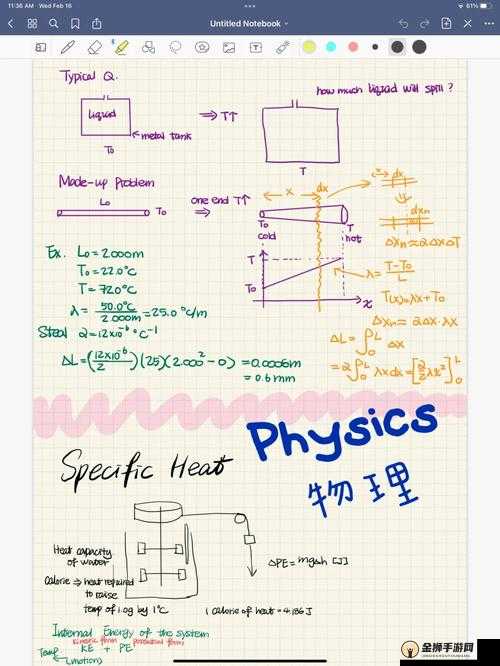 11:36 AM Wed Feb 16
61%
Untitled Notebook
Typical Q.
how much liquid will spill?
Liquid
⇒ T↑
metal tank
T₀
T
Made-up Problem
L₀
T₀
one end T↑
⇒
x
dx
T₀
cold
T
hot
dx
dxₙ
Δxₙ≈αΔxΔT
T
T₀
x
λ = T-T₀/L
T(x)=λx+T₀
Δxₙ=αΔx·λx
ΔL=∫₀ᴸ Δx
=α∫₀ᴸ λxdx=[α/2 λx²]₀ᴸ
Ex. L₀=2.000m
T₀=22.0°C
T=72.0°C
λ = 50.0°C/2.000m =25.0 °C/m
Steel α=12×10⁻⁶ °C⁻¹
ΔL=(12×10⁻⁶/2)(25)(2.000²-0)=0.0006m
=0.6mm
Physics
物理
Specific Heat
Heat capacity
of water
Calorie ⇒ heat required
to raise
temp of 1.0g by 1°C
ΔPE=mgΔh [J]
1 calorie of heat = 4.186J
Internal Energy of the system
kinetic form
potential form
Temp
KE + PE
(motion)
金狮手游网